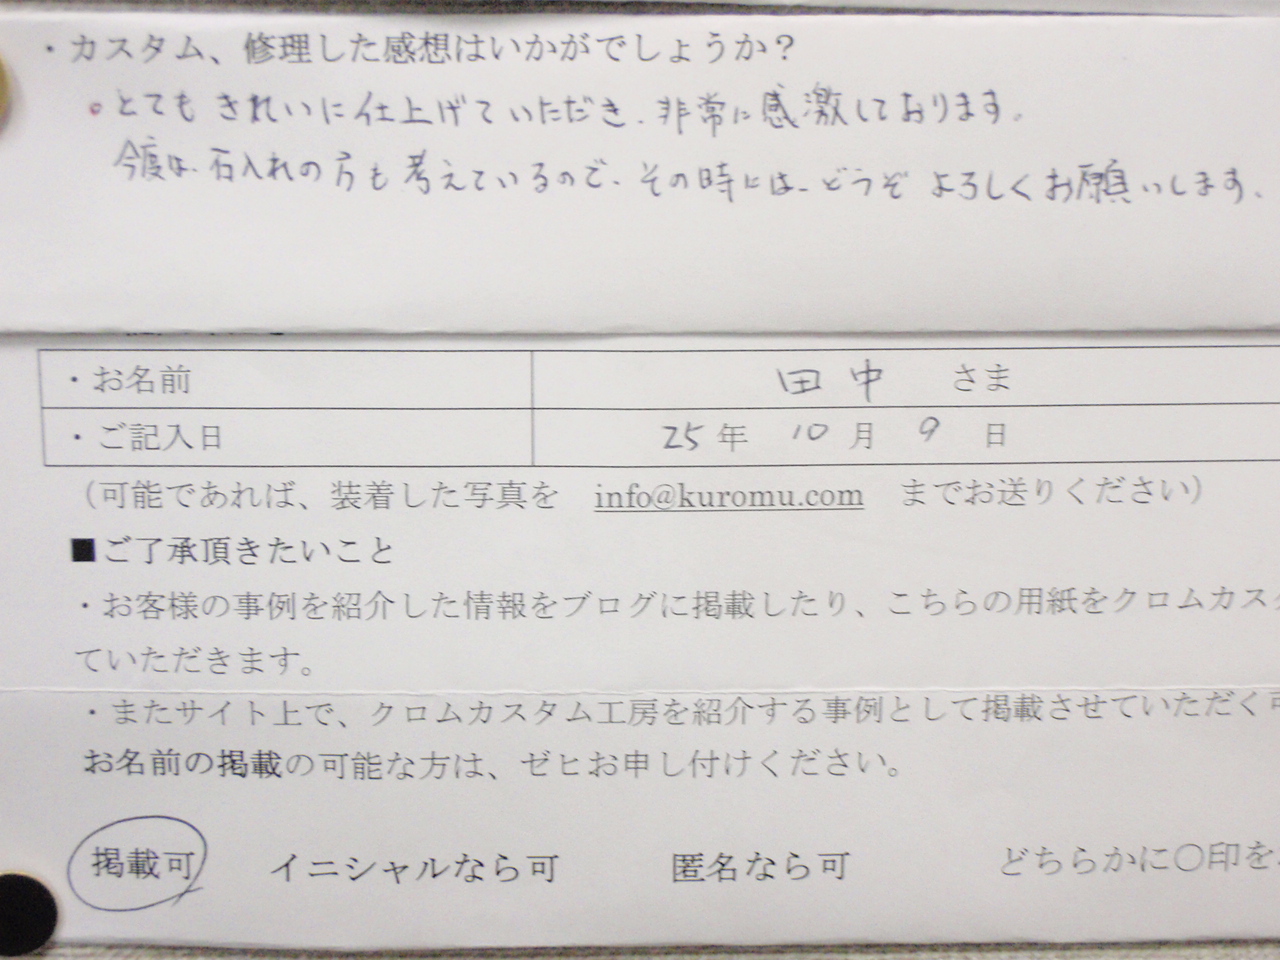 ・カスタム、修理した感想はいかがでしょうか？
。とてもきれいに仕上げていただき、非常に感激しております。
今度は、石入れの方も考えているので、その時には、どうぞよろしくお願いします。
・お名前 田中 さま
・ご記入日 25年 10月 9日
（可能であれば、装着した写真を info@kuromu.com までお送りください）
■ご了承頂きたいこと
・お客様の事例を紹介した情報をブログに掲載したり、こちらの用紙をクロムカス
ていただきます。
・またサイト上で、クロムカスタム工房を紹介する事例として掲載させていただく可
お名前の掲載の可能な方は、ゼヒお申し付けください。
掲載可 イニシャルなら可 匿名なら可 どちらかに〇印を